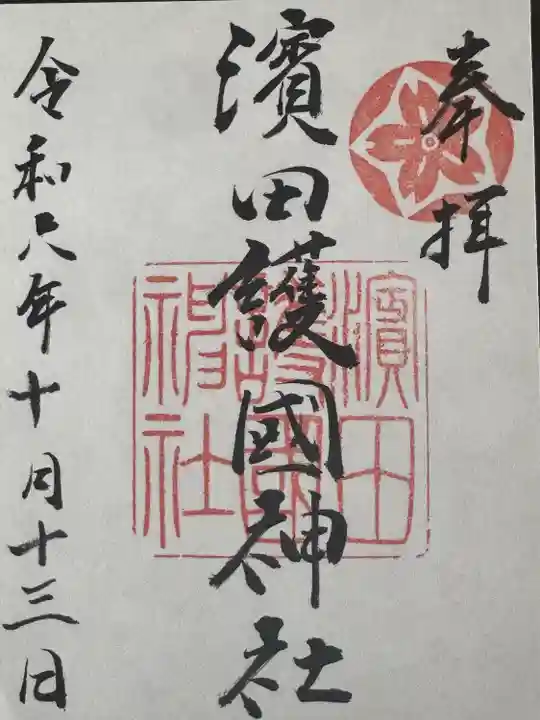 奉拝
濱田護國神社
濱田護國神社
令和六年十月十三日